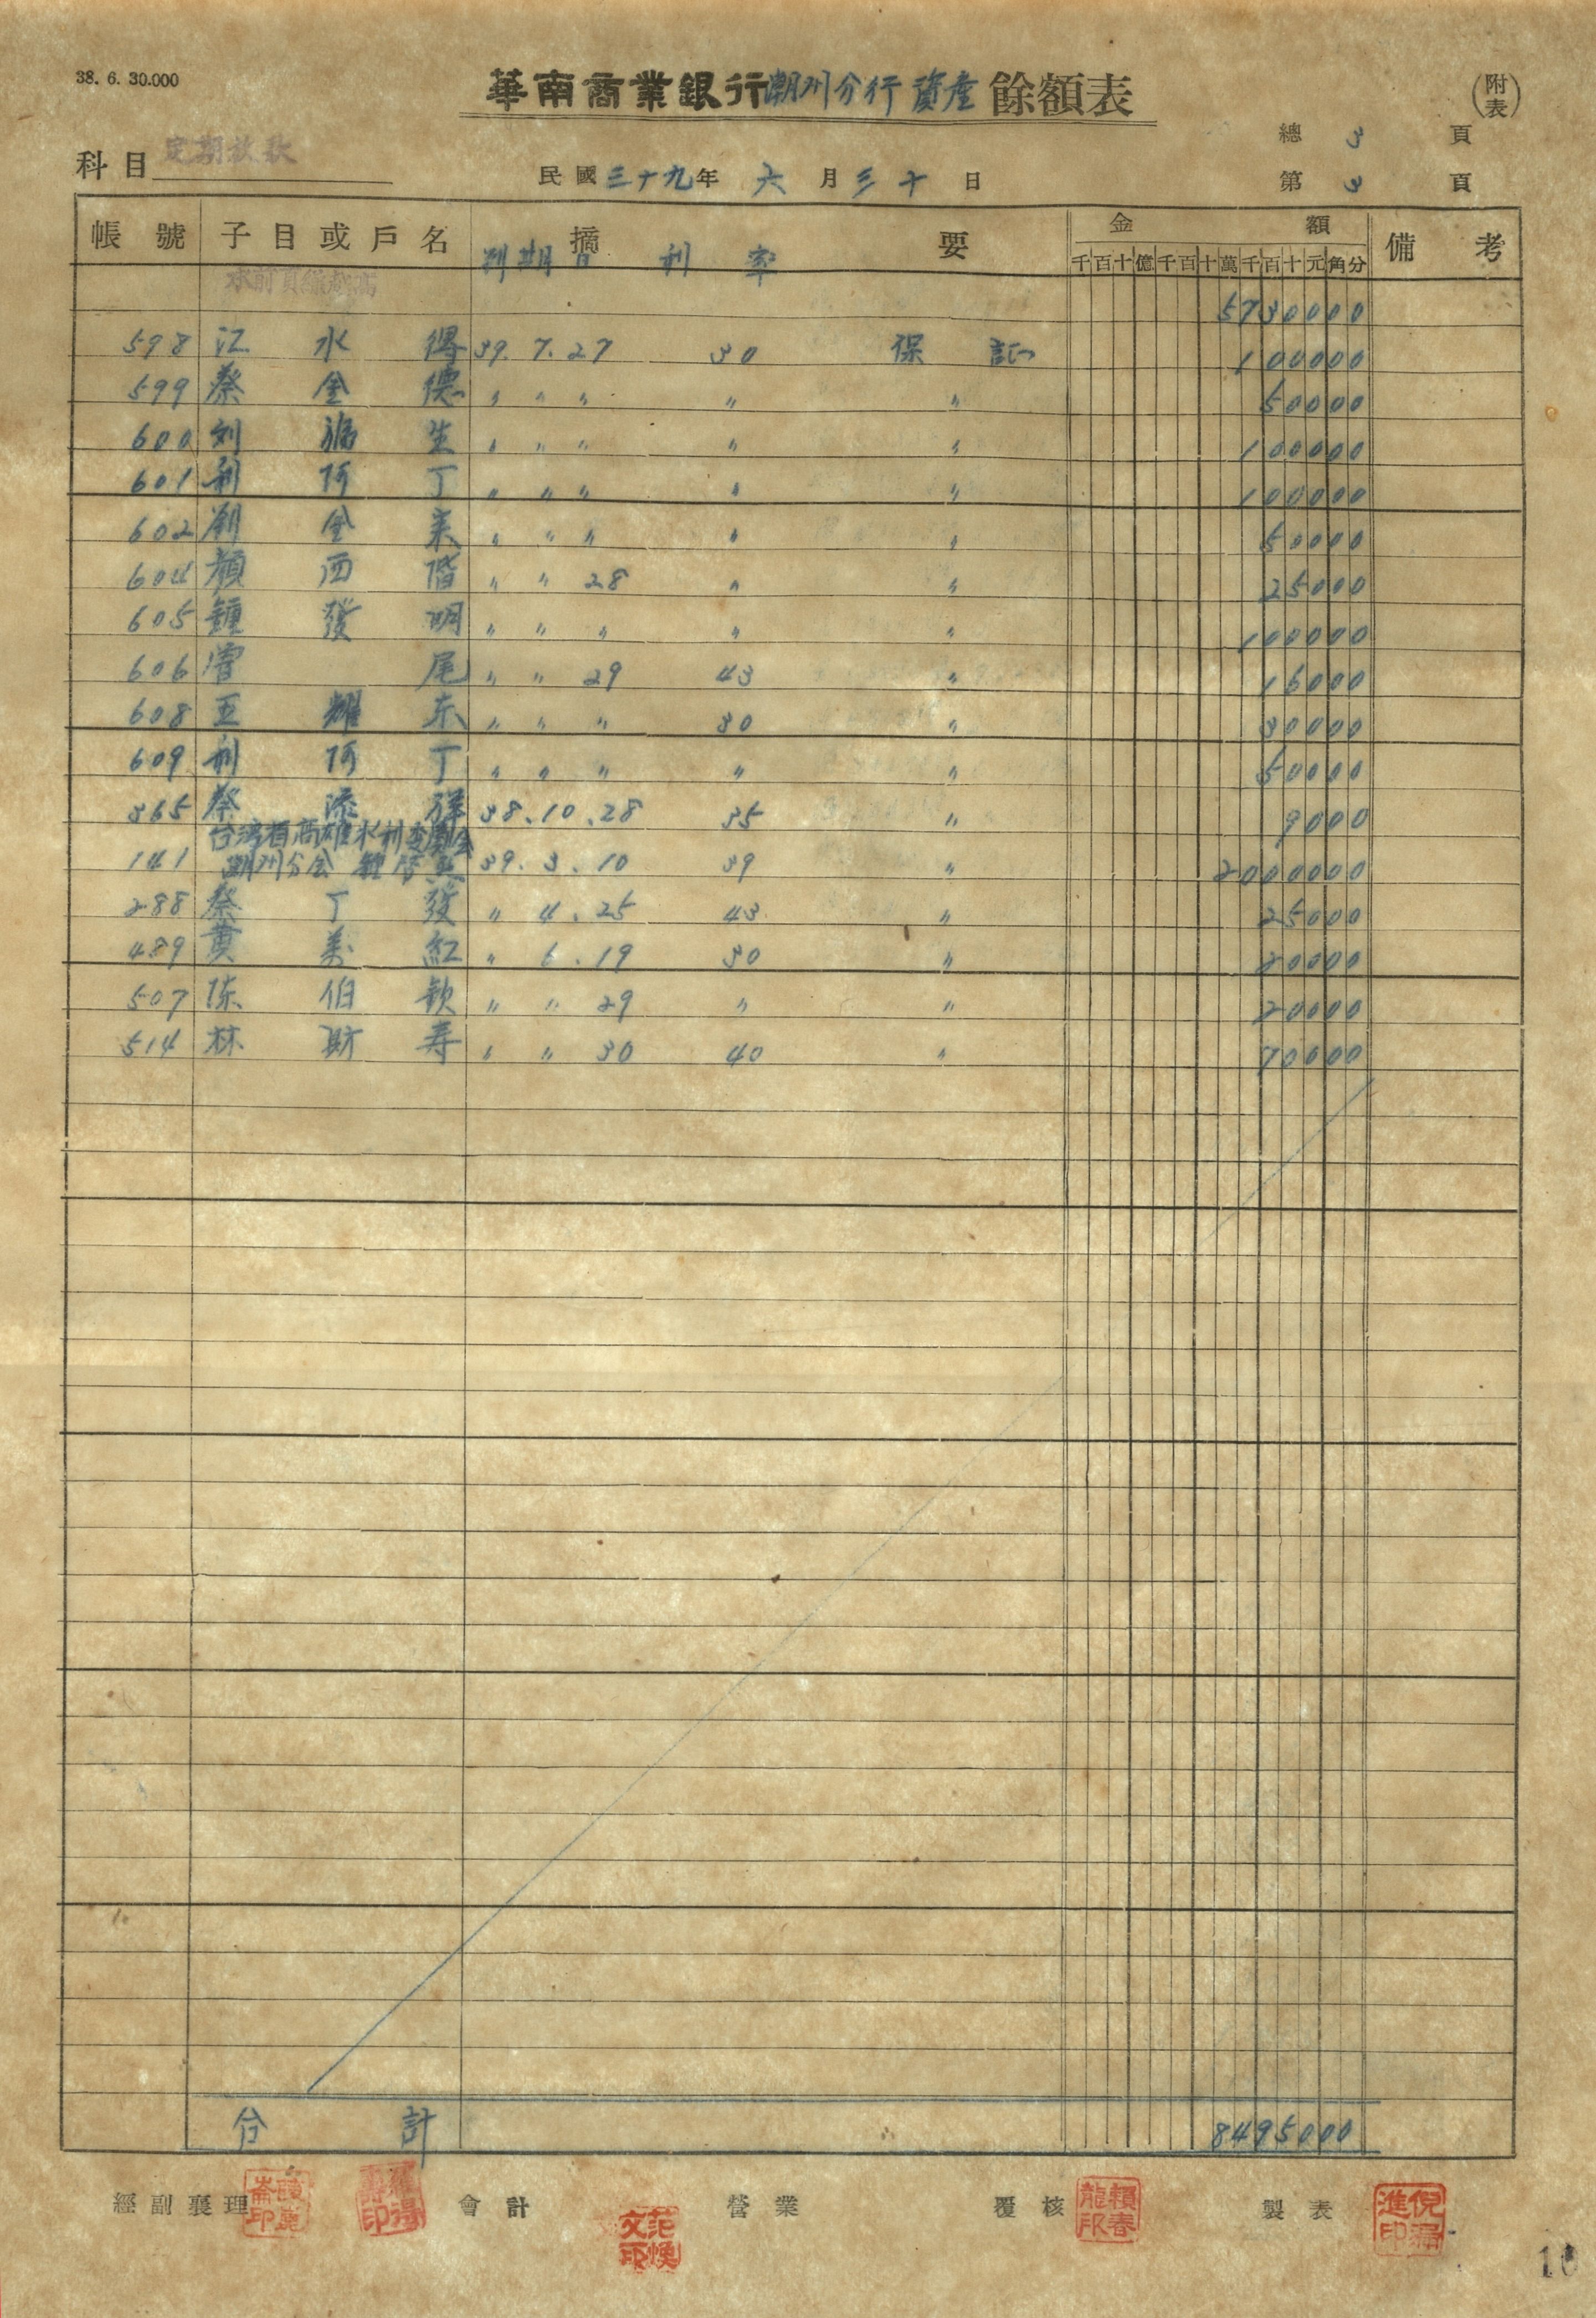 38. 6. 30.000
華南商業銀行潮州分行資產餘額表
(附表)
總 3 頁
科目 定期放款
民國三十九年 六月三十日
第 3 頁
帳號 子目或戶名 摘要 金額 備考
到期日 利率
千百十億千百十萬千百十元角分
5730000
598 江水得 39. 7. 27 30 保証 100000
599 蔡金德 〃 〃 〃 〃 〃 50000
600 刘瑞生 〃 〃 〃 〃 〃 100000
601 利阿丁 〃 〃 〃 〃 〃 100000
602 金来 〃 〃 〃 〃 〃 50000
604 顏西階 〃 〃 28 〃 〃 25000
605 鍾發明 〃 〃 〃 〃 〃 100000
606 曾尾 〃 〃 29 43 〃 16000
608 王耀东 〃 〃 〃 30 〃 30000
609 利阿丁 〃 〃 〃 〃 〃 50000
365 蔡添祥 38. 10. 28 35 〃 9000
台湾省高雄水利委員会
141 潮州分会 鍾 39. 3. 10 39 〃 2000000
288 蔡丁發 〃 4. 25 43 〃 25000
489 黄美紅 〃 6. 19 30 〃 20000
507 陈伯欽 〃 〃 29 〃 〃 20000
514 林財寿 〃 〃 30 40 〃 70000
合計 8495000
經副襄理 會計 營業 覆核 製表
范煥文印
賴春龍印
10